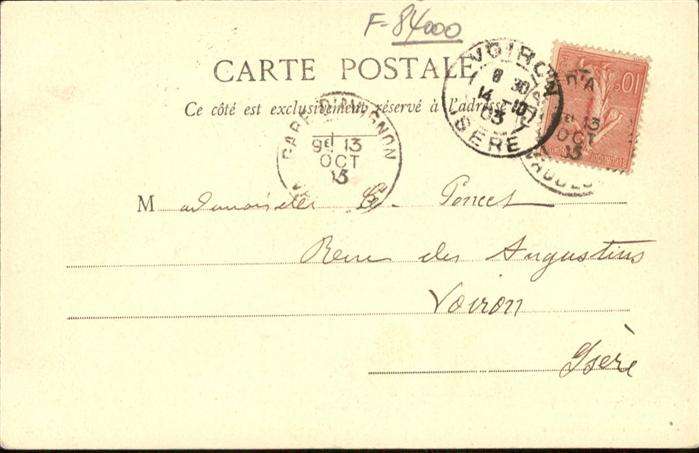 F-84000
CARTE POSTALE
Ce côté est exclusivement réservé à l'adresse
VOIRON
8 30
14 10
03
ISÈRE
10
GARE D'AVIGNON
9e 13
OCT
03
D'A
13
OCT
03
VAUCLUSE
Mademoiselle G. Poncet
Rue des Augustins
Voiron
Isère